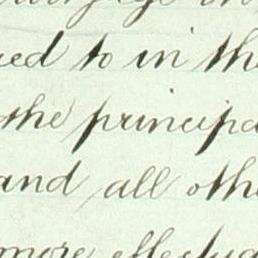 ed to in the
the principa
and all othe
more effectua